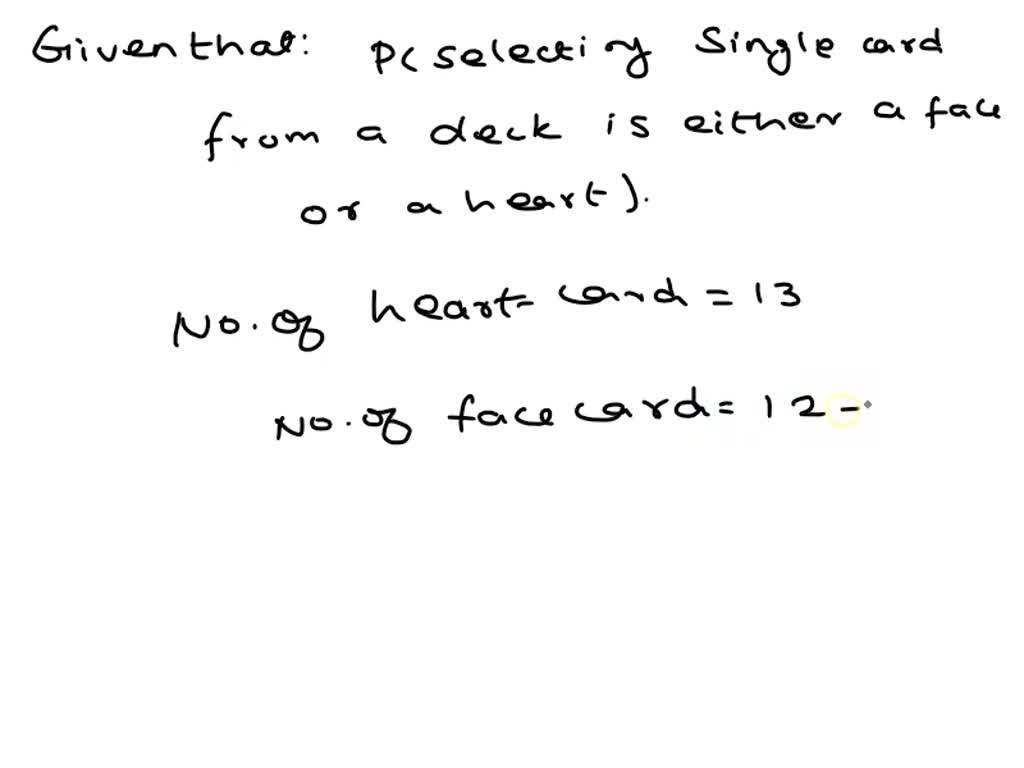 Given that: P( selecting Single card
from a deck is either a face
or a heart).
No. of heart card = 13
No. of face card = 12 -